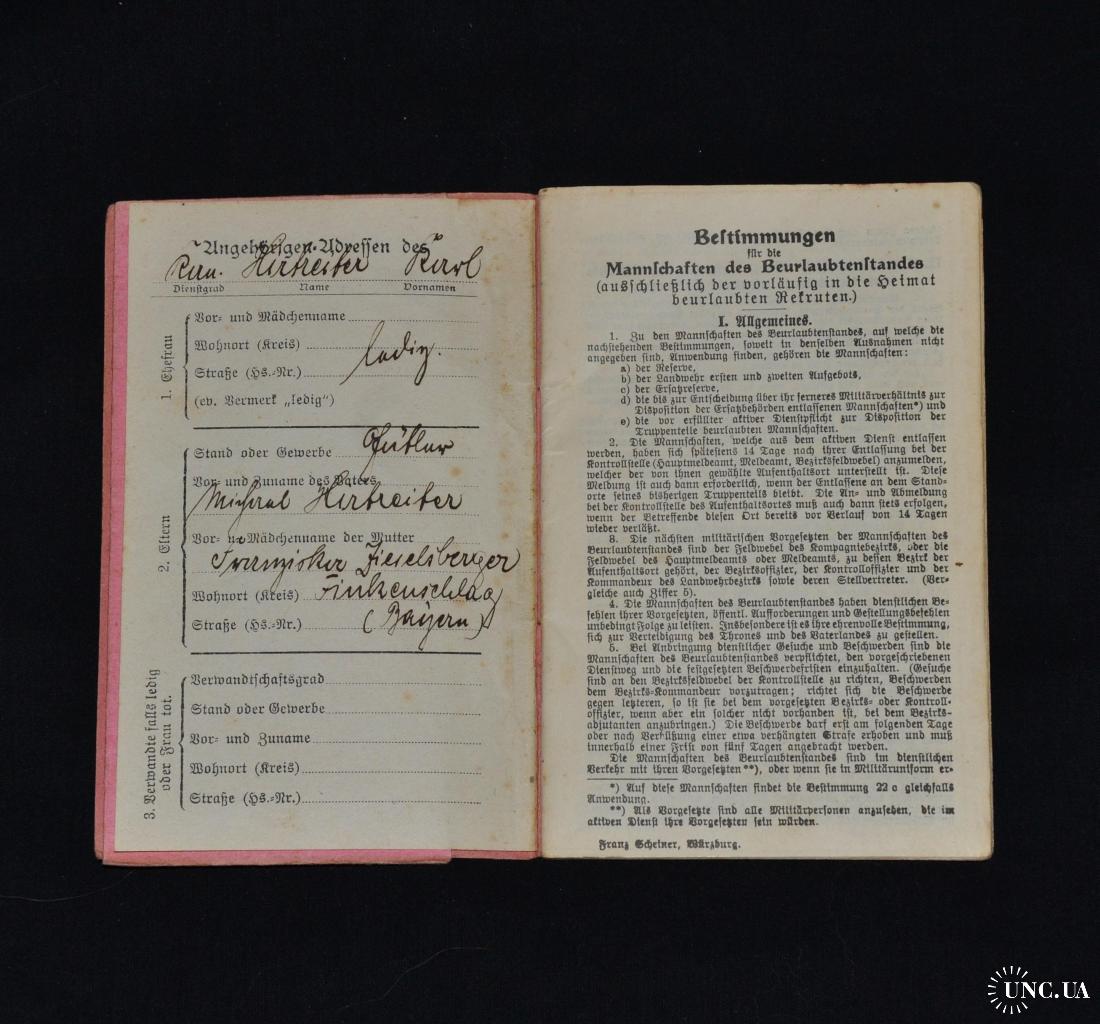 Angehörigen-Adressen des
Hirtreiter Karl
Dienstgrad Name Vornamen
1. Ehefrau
Vor- und Mädchenname
Wohnort (Kreis)
ledig.
Straße (Hs.-Nr.)
(ev. Vermerk „ledig")
2. Eltern
Stand oder Gewerbe Gütler
Vor- und Zuname des Vaters
Michael Hirtreiter
Vor- u. Mädchenname der Mutter
Franziska Zieselsberger
Wohnort (Kreis) Finkenschlag
Straße (Hs.-Nr.) (Bayern)
3. Verwandte falls ledig
oder Frau tot.
Verwandtschaftsgrad
Stand oder Gewerbe
Vor- und Zuname
Wohnort (Kreis)
Straße (Hs.-Nr.)
Bestimmungen
für die
Mannschaften des Beurlaubtenstandes
(ausschließlich der vorläufig in die Heimat
beurlaubten Rekruten.)
I. Allgemeines.
1. Zu den Mannschaften des Beurlaubtenstandes, auf welche die
nachstehenden Bestimmungen, soweit in denselben Ausnahmen nicht
angegeben sind, Anwendung finden, gehören die Mannschaften:
a) der Reserve,
b) der Landwehr ersten und zweiten Aufgebots,
c) der Ersatzreserve,
d) die bis zur Entscheidung über ihr ferneres Militärverhältnis zur
Disposition der Ersatzbehörden entlassenen Mannschaften*) und
e) die vor erfüllter aktiver Dienstpflicht zur Disposition der
Truppenteile beurlaubten Mannschaften.
2. Die Mannschaften, welche aus dem aktiven Dienst entlassen
werden, haben sich spätestens 14 Tage nach ihrer Entlassung bei der
Kontrollstelle (Hauptmeldeamt, Meldeamt, Bezirksfeldwebel) anzumelden,
welcher der von ihnen gewählte Aufenthaltsort unterstellt ist. Diese
Meldung ist auch dann erforderlich, wenn der Entlassene an dem Stand-
orte seines bisherigen Truppenteils bleibt. Die An- und Abmeldung
bei der Kontrollstelle des Aufenthaltsortes muß auch dann stets erfolgen,
wenn der Betreffende diesen Ort bereits vor Verlauf von 14 Tagen
wieder verläßt.
3. Die nächsten militärischen Vorgesetzten der Mannschaften des
Beurlaubtenstandes sind der Feldwebel des Kompagniebezirks, oder die
Feldwebel des Hauptmeldeamts oder Meldeamts, zu dessen Bezirk der
Aufenthaltsort gehört, der Bezirksoffizier, der Kontrolloffizier und der
Kommandeur des Landwehrbezirks sowie deren Stellvertreter. (Ver-
gleiche auch Ziffer 5).
4. Die Mannschaften des Beurlaubtenstandes haben dienstlichen Be-
fehlen ihrer Vorgesetzten, öffentl. Aufforderungen und Gestellungsbefehlen
unbedingt Folge zu leisten. Insbesondere ist es ihre ehrenvolle Bestimmung,
sich zur Verteidigung des Thrones und des Vaterlandes zu gestellen.
5. Bei Anbringung dienstlicher Gesuche und Beschwerden sind die
Mannschaften des Beurlaubtenstandes verpflichtet, den vorgeschriebenen
Dienstweg und die festgesetzten Beschwerdefristen einzuhalten. (Gesuche
sind an den Bezirksfeldwebel der Kontrollstelle zu richten, Beschwerden
dem Bezirks-Kommandeur vorzutragen; richtet sich die Beschwerde
gegen letzteren, so ist sie bei dem vorgesetzten Bezirks- oder Kontroll-
offizier, wenn aber ein solcher nicht vorhanden ist, bei dem Bezirks-
adjutanten anzubringen.) Die Beschwerde darf erst am folgenden Tage
oder nach Verbüßung einer etwa verhängten Strafe erhoben und muß
innerhalb einer Frist von fünf Tagen angebracht werden.
Die Mannschaften des Beurlaubtenstandes sind im dienstlichen
Verkehr mit ihren Vorgesetzten**), oder wenn sie in Militäruniform er-
*) Auf diese Mannschaften findet die Bestimmung 22 c gleichfalls
Anwendung.
**) Als Vorgesetzte sind alle Militärpersonen anzusehen, die im
aktiven Dienst ihre Vorgesetzten sein würden.
Franz Scheiner, Würzburg.
UNC.UA